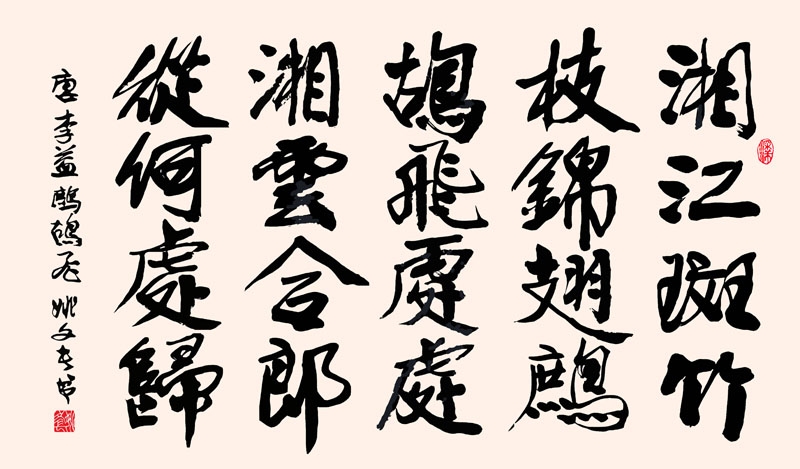 湘江斑竹
枝錦翅鷓
鴣飛處處
湘雲合郎
從何處歸
唐李益鷓鴣飞姚文長常